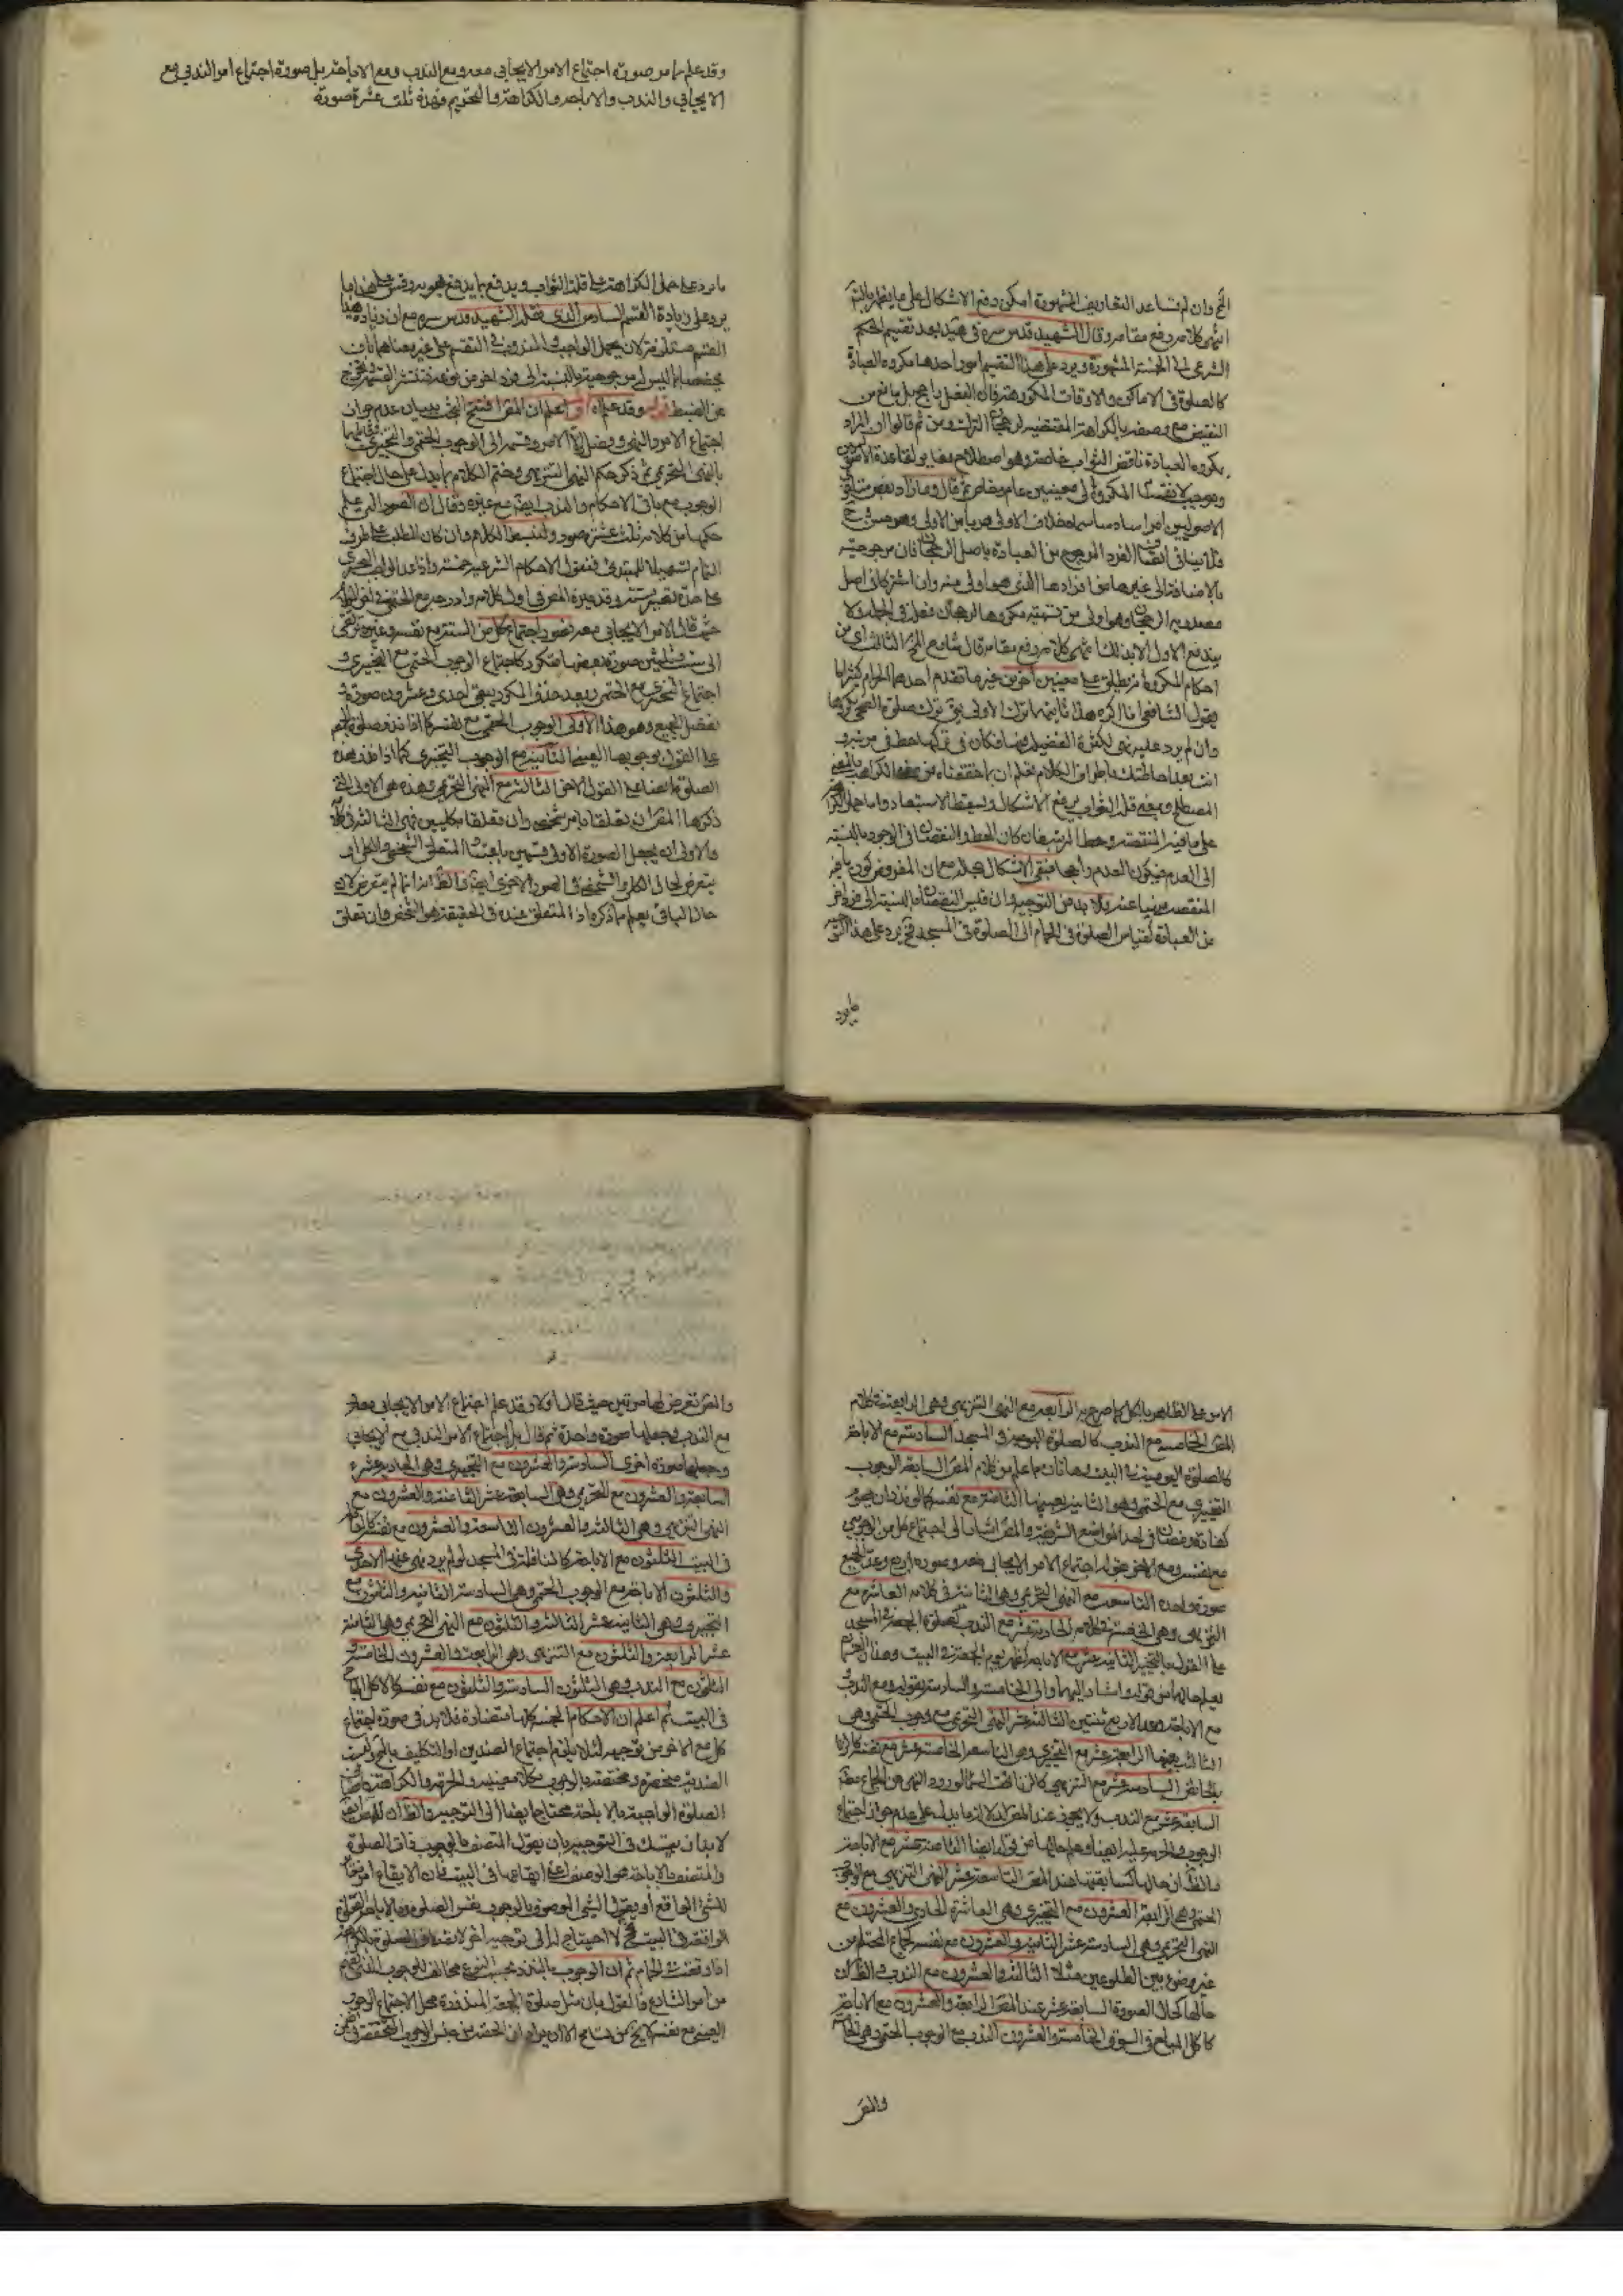 الخ وان لم تساعد التعاريف المشهورة امكن دفع الاشكال على ما يظهر بالتم
انتهى كلامه رفع مقامه وقال الشهيد قدس سره في تمهيد بعد تقسيم الحكم
الشرعي الى الخمسة المشهورة ويرد على هذا التقسيم امور احدها مكروه العبادة
كالصلوة في الاماكن والاوقات المكروهة فان الفعل راجح بل مانع من
النقيض مع وصفه بالكراهة المقتضية لرجحان الترك ومن ثم قالوا ان المراد
بمكروه العبادة ناقص الثواب خاصة وهو اصطلاح مغاير لقاعدة الاصوليين
ويوجب لانقسام المكروه الى معنيين عام وخاص ثم قال وما زاد بعض متأخري
الاصوليين امرا سادسا سماه خلاف الاولى هربا من الاولى وهو حسن ح
فلا ينافي اتصاف الفرد المرجوح من العبادة باصل الرجحان فان مرجوحيته
بالاضافة الى غيرها من افرادها الذي هو اولى منه وان اشتركا في اصل
يندفع الاول الا بذلك انتهى كلامه رفع مقامه قال شارح المختصر الثالث اي من
احكام المكروه انه يطلق على معنيين آخرين غير ما تقدم احدهما الحرام كثيرا ما
يقول الشافعي انا اكره هذا ثانيهما ترك الاولى يعني ترك صلوة الضحى مكروها
وان لم يرد عليه نهي لكثرة الفضيلة فيها فكان في تركها حط في مرتبة و
انت بعد احاطتك باطراف الكلام تعلم ان ما حققناه من
المصطلح وبمعنى قلة الثواب يرفع الاشكال ويسقط الاستبعاد واما حمل
على ما فيه المنقصة وحط المرتبة فان كان الحط والنقصان في الوجود بالنسبة
الى العدم فيكون العدم راجحا فبقي الاشكال بحاله مع ان المفروض كون ما فيه
من العبادة كقياس الصلوة في الحمام الى الصلوة في المسجد فح يرد على هذا
ما يرد
وقد علم ما مر صورة اجتماع الامر الايجابي معه ومع الندب ومع الاباحة بل صورة اجتماع امر الندبي مع
الايجابي والندب والاباحة والكراهة والتحريم فهذه ثلث عشرة صورة
ما يرد على حمل الكراهة على قلة الثواب ويدفع بما يدفع به وقس على هذا ما
يرد على زيادة القسم السادس الذي نقله الشهيد قدس سره مع ان زيادة هذا
عن الضبط قوله وقد علم اه اعلم ان المص افتتح البحث ببيان عدم جواز
اجتماع الامر والنهي وفصل اولا الامر وقسمه الى الوجوب الحتمي والتخييري
بالنهي التحريمي ثم ذكر حكم النهي التنزيهي وختم الكلام بما يدل على حال اجتماع
الوجوب مع باقي الاحكام والندب ايضا مع غيره وقال ان الصور التي علم
حكمها من كلامه ثلث عشرة صورة ولنبسط الكلام وان كان للطلب على طرف
الثمام تسهيلا للمبتدي فنقول الاحكام الشرعية خمسة واذا عد الواجب التخييري
حيث قال الامر الايجابي معه فصور اجتماع كل من الستة مع نفسه وغيره ترتقي
الى ست وثلثين صورة بعضها متكرر كاجتماع الوجوب الحتمي مع التخييري و
اجتماع التخييري مع الحتمي وبعد حذف المكرر يبقى احدى وعشرون صورة و
تفصيل الجميع وهو هذا الاولى الوجوب الحتمي مع نفسه كما اذا نذر صلوة
على القول بوجوبها العيني الثانية مع الوجوب التخييري كما اذا نذر هذه
الصلوة ايضا على القول الاخر الثالثة مع النهي التحريمي وهذه هي الاولى التي
ذكرها المص ان تعلقا بامر شخصي وان تعلقا بكليين فهي الثالثة في كلامه
والاولى ان يجعل الصورة الاولى قسمين باعتبار المتعلق الشخصي والكلي او
يتعرض لحال الكلي والشخصي في الصور الاخرى ايضا والظ انه انما لم يتعرض لان
حال الباقي يعلم مما ذكره اذ المتعلق عنده في الحقيقة هو الشخص وان تعلق
الامر على الظاهر بالكل كما صرح به الرابعة مع النهي التنزيهي وهي الرابعة في كلام
المص الخامسة مع الندب كالصلوة اليومية في المسجد السادسة مع الاباحة
كالصلوة اليومية في البيت وهاتان مما علم من كلام المص السابعة الوجوب
التخييري مع الحتمي وهو الثانية بعينها الثامنة مع نفسه كما لو نذر ان يصوم
كفارة رمضان في احد المواضع الشريفة والمص اشار الى اجتماع كل من الوجوبين
مع نفسه ومع الاخر بقوله اجتماع الامر الايجابي معه وصوره اربع وعد الجميع
صورة واحدة التاسعة مع النهي التحريمي وهي الثانية في كلامه العاشرة مع
التنزيهي وهي الخامسة في كلامه الحادية عشر مع الندب كصلوة الجمعة في المسجد
على القول بالتخيير الثانية عشر مع الاباحة كظهر يوم الجمعة في البيت وهاتان ايضا
يعلم حالهما من قوله واشار اليهما والى الخامسة والسادسة بقوله ومع الندب و
مع الاباحة فعد الاربع ثنتين الثالثة عشر النهي التحريمي مع وجوب الحتمي وهي
الثالثة بعينها الرابعة عشر مع التخييري وهو التاسعة الخامسة عشر مع نفسه كالزنا
بالحائض السادسة عشر مع التنزيهي
السابعة عشر مع الندب ولا يجوز عند المص لان ما يدل على عدم جواز اجتماع
الوجوب والحرمة عليه ايضا وعلم حالها من قوله ايضا الثامنة عشر مع الاباحة
والظ ان حالها كسابقتها عند المص التاسعة عشر النهي التنزيهي مع الوجوب
الحتمي وهي الرابعة العشرون مع التخييري وهي العاشرة الحادي والعشرون مع
النهي التحريمي وهي السادسة عشر الثانية والعشرون مع نفسه كجماع المحتلم من
غير وضوء بين الطلوعين مثلا الثالثة والعشرون مع الندب والظ ان
حالها كحال الصورة السابعة عشر عند المص الرابعة والعشرون مع الاباحة
كاكل المباح في السوق الخامسة والعشرون الندب مع الوجوب الحتمي وهي الخامسة
والمص
والمص تعرض لها مرتين حيث قال اولا وقد علم اجتماع الامر الايجابي معه و
مع الندب وجعلها صورة واحدة ثم قال بل اجتماع الامر الندبي مع الايجابي
وجعلها صورة اخرى السادسة والعشرون مع التخييري وهي الحادية عشر
السابعة والعشرون مع التحريمي وهي السابعة عشر الثامنة والعشرون مع
النهي التنزيهي وهي الثالثة والعشرون التاسعة والعشرون مع نفسه
في البيت الثلثون مع الاباحة كالنافلة في المسجد لو لم يرد نهي عنها الاحدى
والثلثون الاباحة مع الوجوب الحتمي وهي السادسة الثانية والثلثون مع
التخييري وهي الثانية عشر الثالثة والثلثون مع النهي التحريمي وهي الثامنة
عشر الرابعة والثلثون مع التنزيهي وهي الرابعة والعشرون الخامسة و
الثلثون مع الندب وهي الثلثون السادسة والثلثون مع نفسه كالاكل المباح
في البيت ثم اعلم ان الاحكام الخمسة كلها متضادة فلا بد في صورة اجتماع
كل مع الاخر من توجيه لئلا يلزم اجتماع الضدين او التكليف بالمحال وليست
الضدية منحصرة ومختصة بالوجوب بكلا معنييه والحرمة والكراهة
الصلوة الواجبة بالاباحة محتاج ايضا الى التوجيه والظ ان للمص ايضا
لا بد ان يتمسك في التوجيه بان يقول المتصف بالوجوب ذات الصلوة
والمتصف بالاباحة هو الوصف اعني ايقاعها في البيت فان الايقاع امر
للشئ الواقع او يقول الشئ الموصوف بالوجوب نفس الصلوة وبالاباحة الصلوة
الواقعة في البيت فح لا احتياج له الى توجيه آخر لاتصاف الصلوة بالكراهة
اذا وقعت في الحمام ثم ان الوجوب بالنذر بحسب النوع مخالف للوجوب الذي يفهم
من امر الشارع فالقول بان مثل صلوة الجمعة المنذورة محل الاجتماع الوجوب
العيني مع نفسه لا يخ من تسامح الا ان يراد ان الحقيقة من جنس الوجوب المتحققة في ضمن